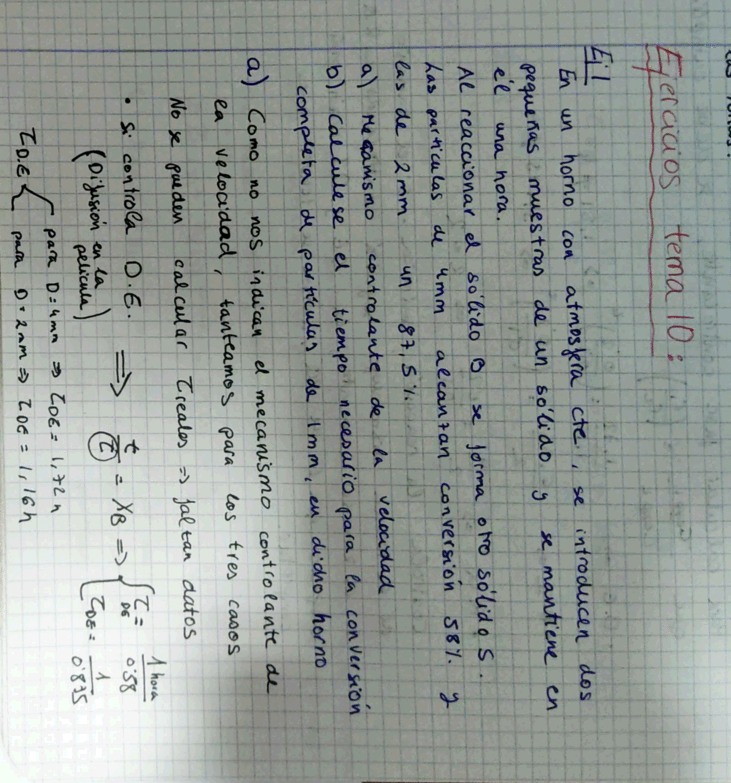 Ejercicios tema 10:
Ej1
En un horno con atmosfera cte, se introducen dos
pequeñas muestras de un sólido y se mantiene en
él una hora.
Al reaccionar el sólido B se forma otro sólido S.
Las partículas de 4mm alcanzan conversión 58% y
las de 2mm un 87,5%.
a) Mecanismo controlante de la velocidad
b) Calculese el tiempo necesario para la conversión
completa de partículas de 1mm, en dicho horno
a) Como no nos indican el mecanismo controlante de
la velocidad, tanteamos para los tres casos
No se pueden calcular τ reales => faltan datos
• Si controla D.E. => t/τ = XB => { τDE = 1 hora/0'58
τDE = 1/0'875
(Difusión en la
película)
τD.E { para D=4mm => τDE = 1,72h
para D=2mm => τDE = 1,16h